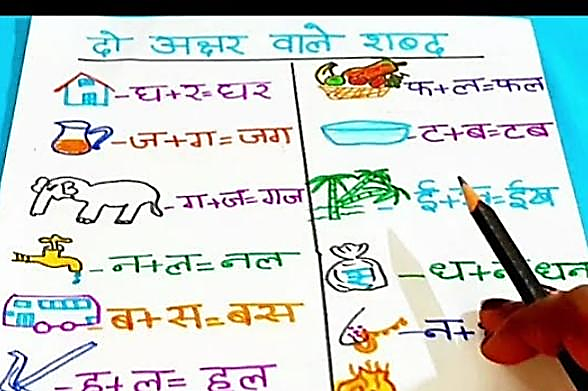 दो अक्षर वाले शब्द
घ+र=घर
ज+ग=जग
ग+ज=गज
न+ल=नल
ब+स=बस
ह+ल=हल
फ+ल=फल
ट+ब=टब
ई+ =ईख
ध+न धन
न+